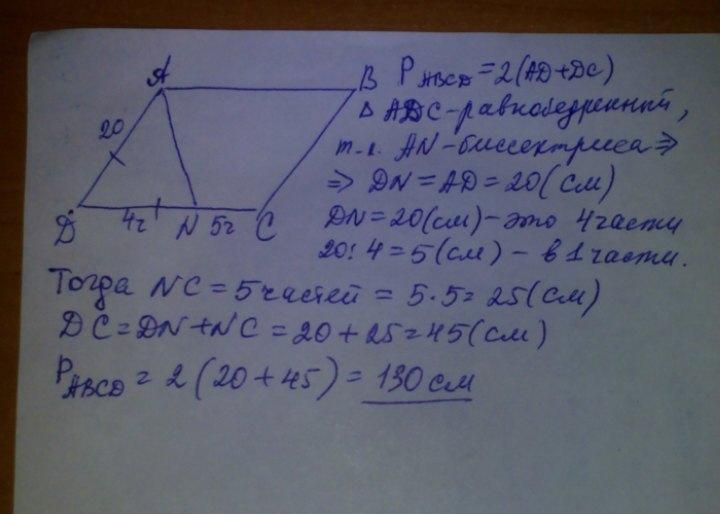 A
B
20
D
4ч
N
5ч
C
P ABCD = 2(AD+DC)
Δ ADC-равнобедренный,
т.к. AN-биссектриса ⇒
⇒ DN = AD = 20 (см)
DN = 20(см) - это 4 части
20 : 4 = 5 (см) - в 1 части.
Тогда NC = 5 частей = 5·5 = 25 (см)
DC = DN + NC = 20 + 25 = 45 (см)
P ABCD = 2 (20 + 45) = 130 см